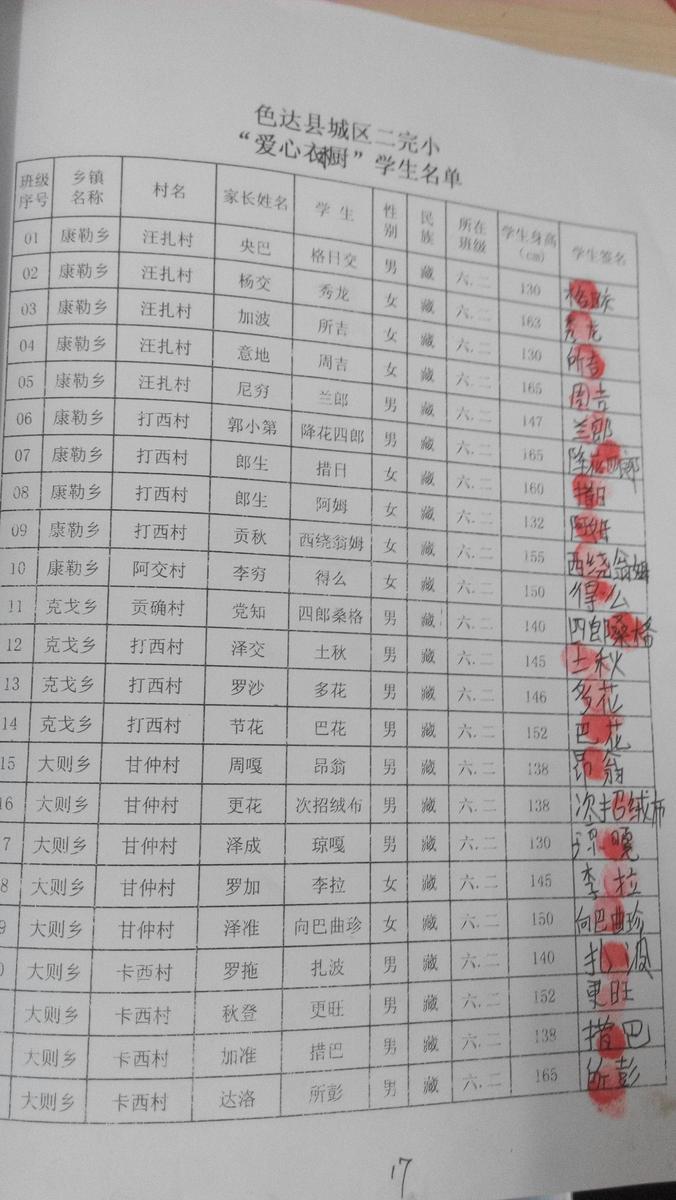 色达县城区二完小
“爱心衣橱”学生名单
班级序号 乡镇名称 村名 家长姓名 学生 性别 民族 所在班级 学生身高(cm) 学生签名
01 康勒乡 汪扎村 央巴 格日交 男 藏 六.二 130 格日交
02 康勒乡 汪扎村 杨交 秀龙 女 藏 六.二 163 秀龙
03 康勒乡 汪扎村 加波 所吉 女 藏 六.二 130 所吉
04 康勒乡 汪扎村 意地 周吉 女 藏 六.二 165 周吉
05 康勒乡 汪扎村 尼穷 兰郎 男 藏 六.二 147 兰郎
06 康勒乡 打西村 郭小第 降花四郎 男 藏 六.二 165 降花四郎
07 康勒乡 打西村 郎生 措日 女 藏 六.二 160 措日
08 康勒乡 打西村 郎生 阿姆 女 藏 六.二 132 阿姆
09 康勒乡 打西村 贡秋 西绕翁姆 女 藏 六.二 155 西绕翁姆
10 康勒乡 阿交村 李穷 得么 女 藏 六.二 150 得么
11 克戈乡 贡确村 党知 四郎桑格 男 藏 六.二 140 四郎桑格
12 克戈乡 打西村 泽交 土秋 男 藏 六.二 145 土秋
13 克戈乡 打西村 罗沙 多花 男 藏 六.二 146 多花
14 克戈乡 打西村 节花 巴花 男 藏 六.二 152 巴花
15 大则乡 甘仲村 周嘎 昂翁 男 藏 六.二 138 昂翁
16 大则乡 甘仲村 更花 次招绒布 男 藏 六.二 138 次招绒布
7 大则乡 甘仲村 泽成 琼嘎 男 藏 六.二 130 琼嘎
8 大则乡 甘仲村 罗加 李拉 女 藏 六.二 145 李拉
9 大则乡 甘仲村 泽准 向巴曲珍 女 藏 六.二 150 向巴曲珍
0 大则乡 卡西村 罗拖 扎波 男 藏 六.二 140 扎波
大则乡 卡西村 秋登 更旺 男 藏 六.二 152 更旺
大则乡 卡西村 加准 措巴 男 藏 六.二 138 措巴
大则乡 卡西村 达洛 所彭 男 藏 六.二 165 所彭
17